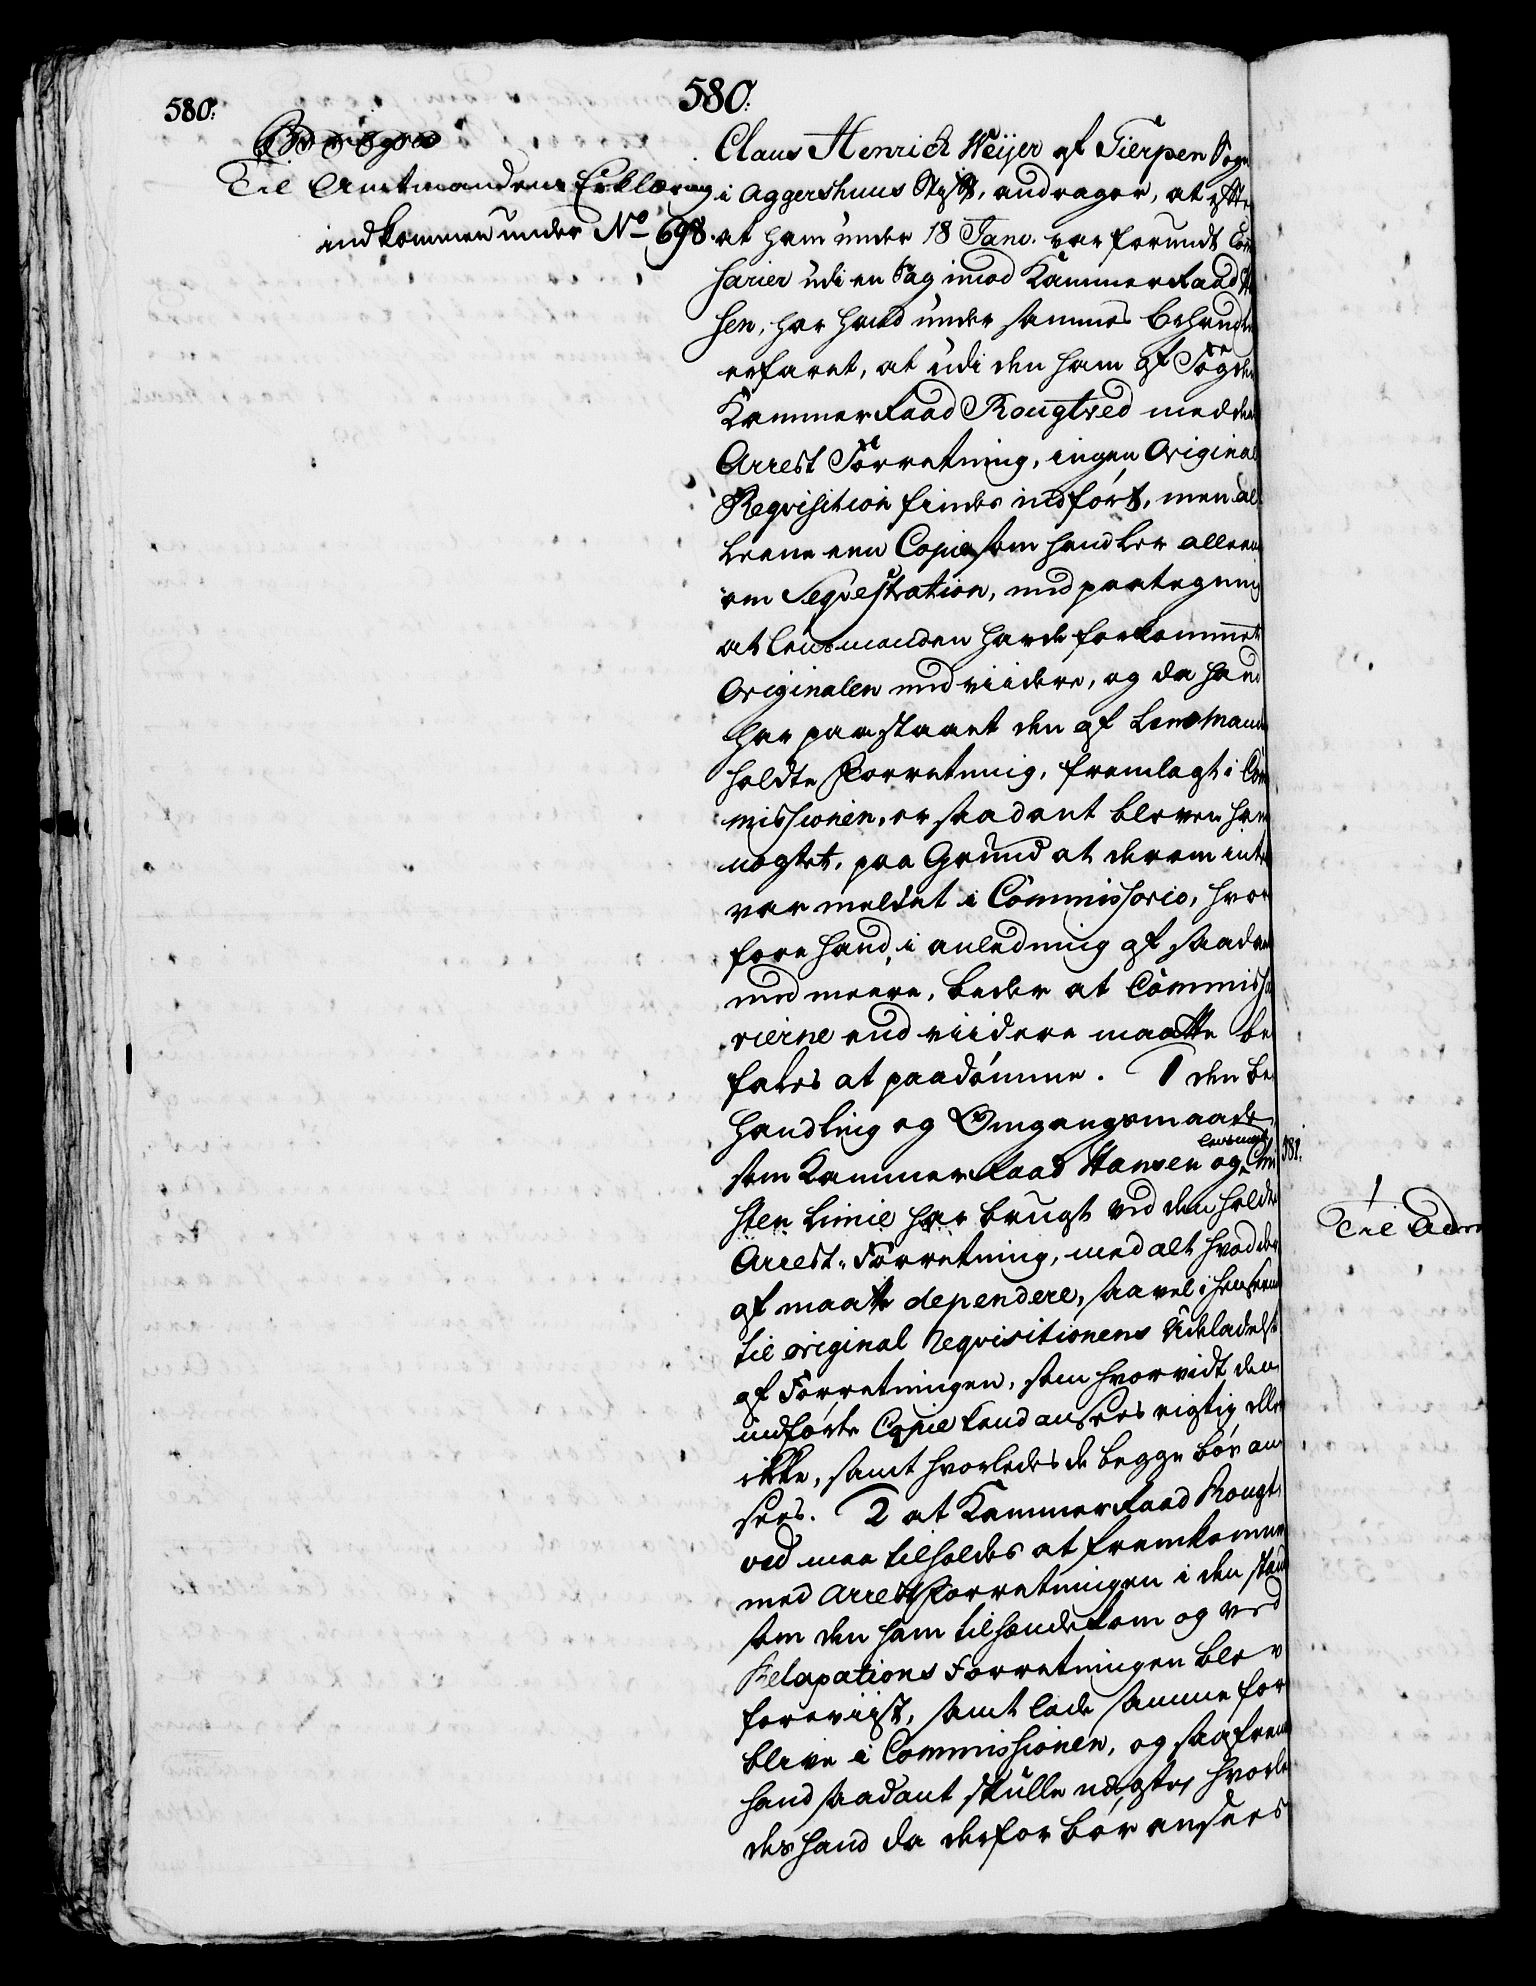 580.
580.
Til Amtmandens Erklæring
indkommen under No 698.
Claus Henrich Weijer af Tierpen Sogn
i Aggershuus Stift, andrager, at efter
at ham under 18 Janv. var forundt Com
harier udi en Sag imod KammerRaad
sen, har hand under sammes
erfaret, at udi den ham af
KammerRaad Rougtved meddeelte
Arrest Forretning, ingen Original
Reqvisition findes indført, men al
leene een Copie som handler alleene
om Seqvestration, med paategning
at Lensmanden hafde forkommet
Originalen med viidere, og da hand
har paastaaet den af Lensmanden
holdte Forretning, fremlagt i Com
missionen, er saadant bleven ham
nægtet, paa Grund at derom intet
var meldet i Commissorio, hvor
fore hand, i anledning af saadant
med meere, beder at Commissa
rierne end viidere maatte be
fales at paadömme. 1 den be
handling og Omgangsmaade,
som KammerRaad Hansen og Lensmand Chri
sten Linie har brugt ved den holdte
Arrest-Forretning, med alt hvad der
af maatte dependere, saavel i henseende
til original Reqvisitionens Udeladelse
af Forretningen, som hvorvidt den
indförte Copie kand ansees rigtig eller
ikke, samt hvorledes de begge bör an
sees. 2 at KammerRaad Rougt
ved maa tilholdes at fremkomme
med ArrestForretningen i den stand
som den ham tilhænde kom og ved
Relaxations Forretningen blev
foreviist, samt lade samme for
blive i Commissionen, og saafremt
hand saadant skulle nægte, hvorle
des hand da derfor bör ansees
581.